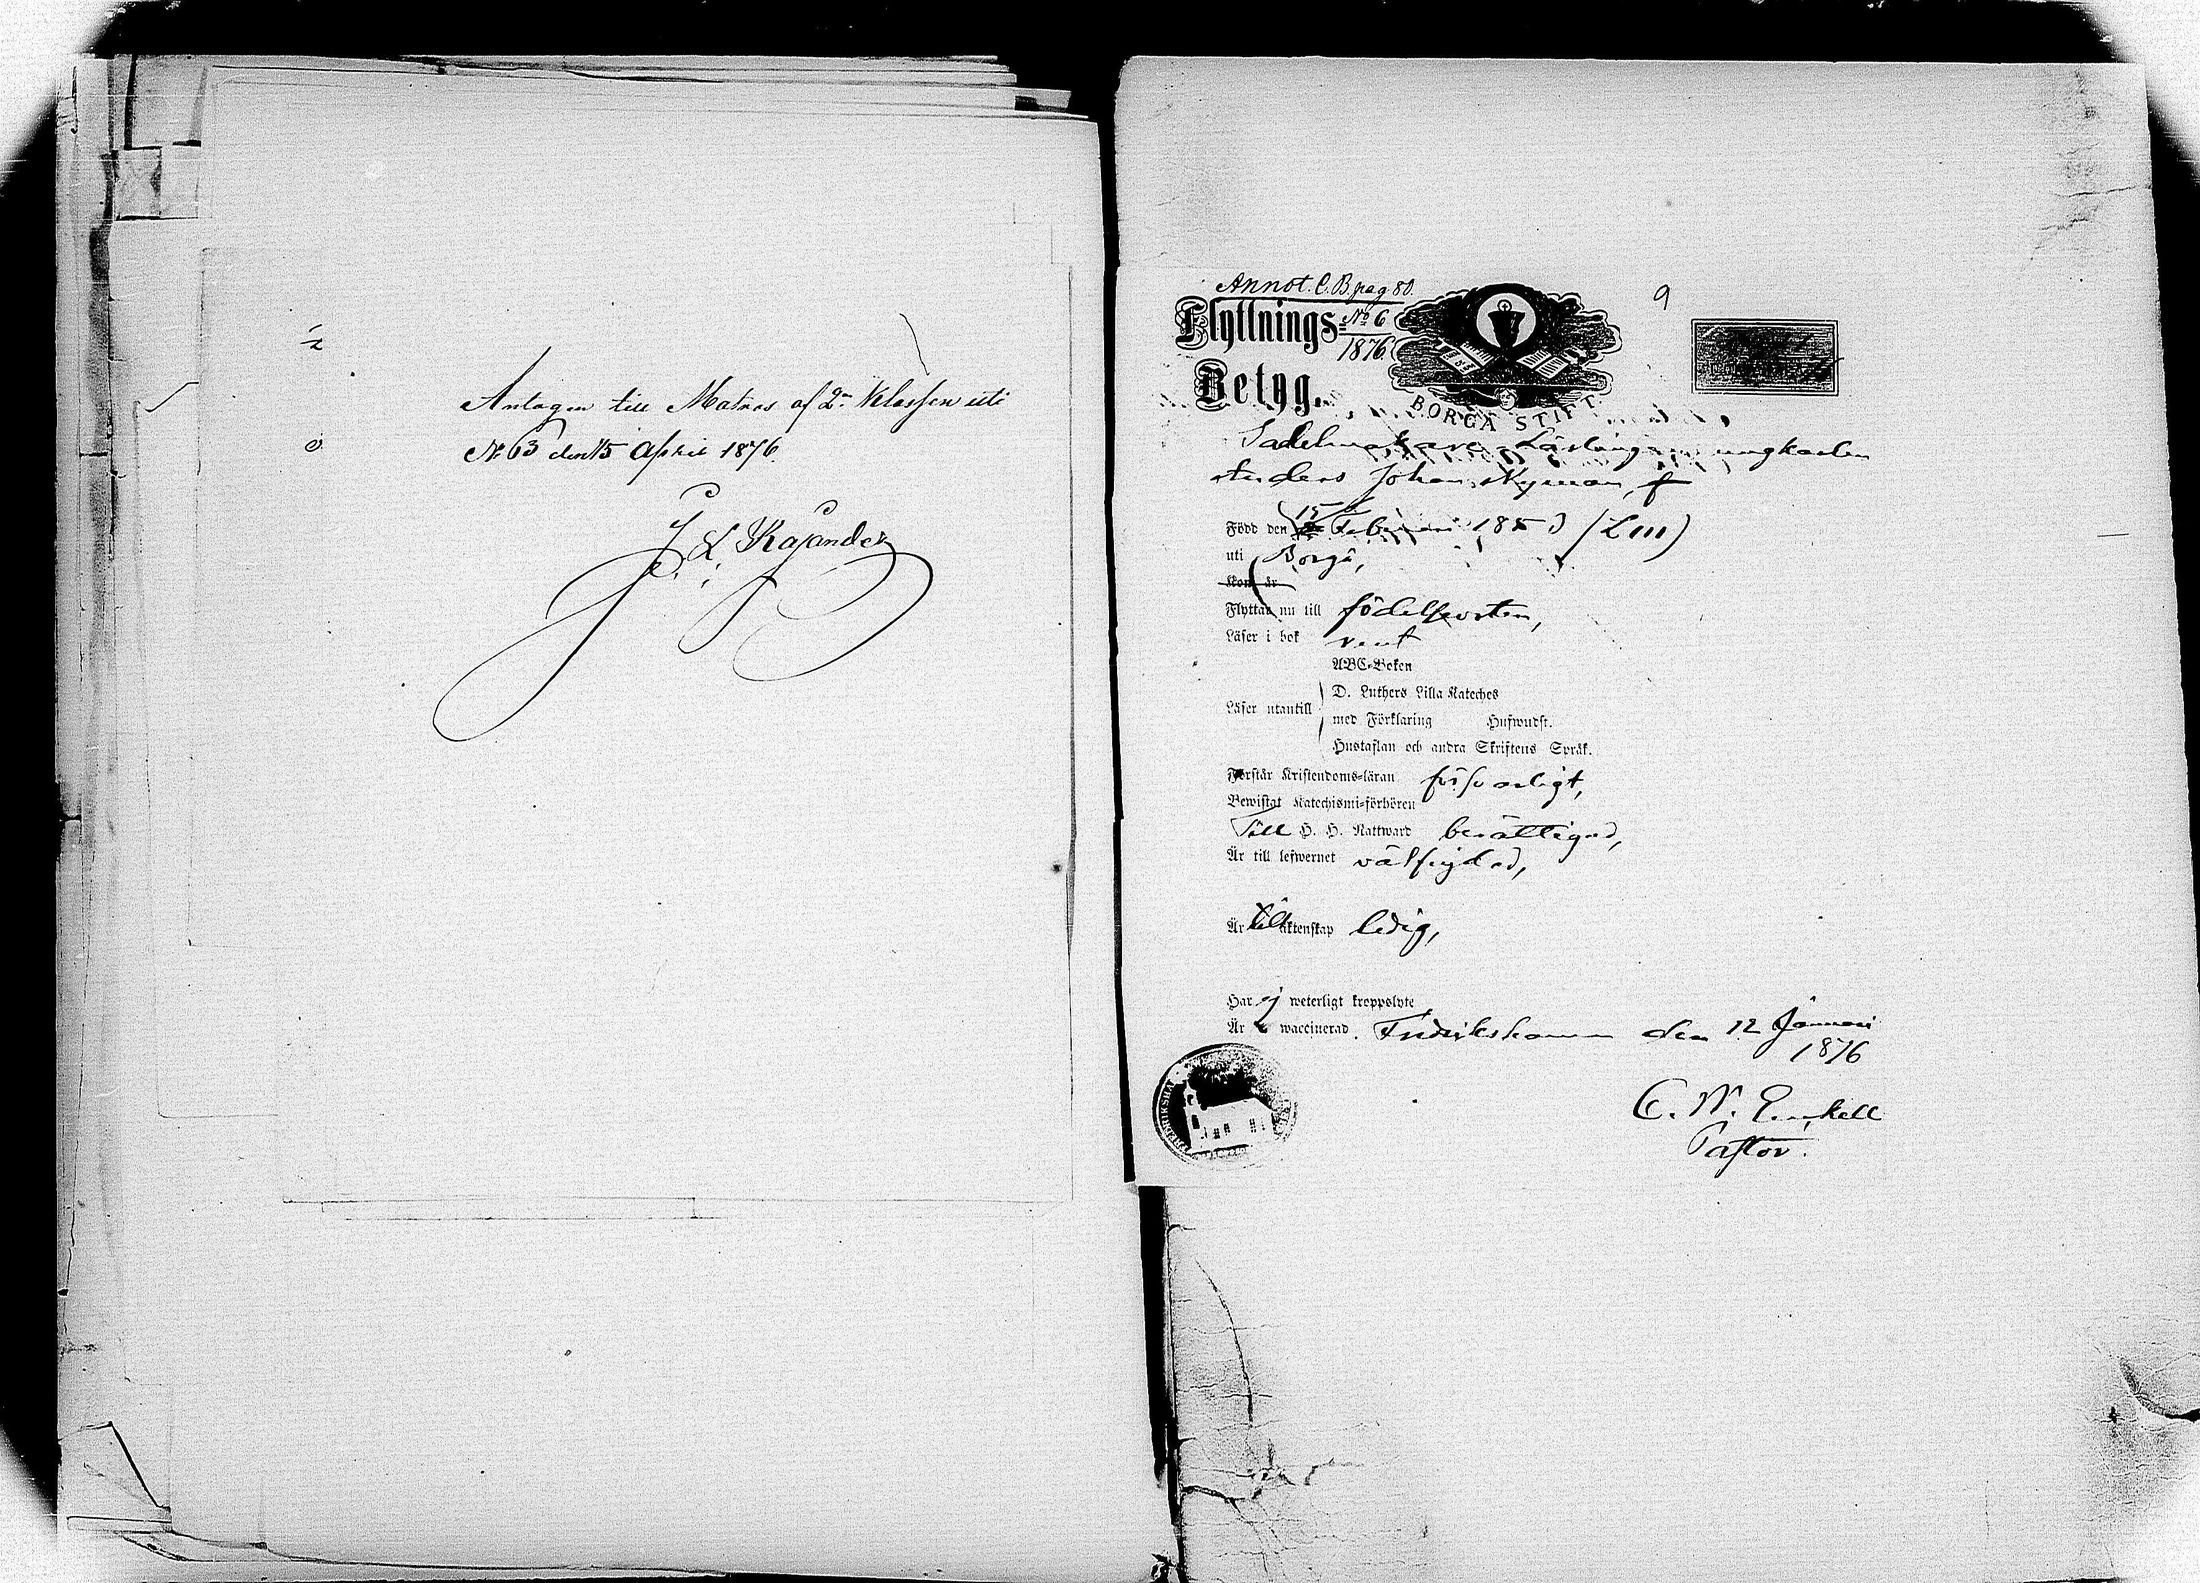 Antagen till Matros af 2a Klassen uti
No 63 den 15 April 1876.
J. L. Kajander
9
Annot. C. B. pag 80.
Flyttnings- No 6
1876.
Betyg.
BORGÅ STIFT
Sadelmakare Lärling ungkarlen
Anders Johan Nyman, f
15
Född den Februari 1853 (LIII)
uti Borgå,
Kom år
Flyttar nu till födelseorten,
Läser i bok rent
ABC-Boken
D. Luthers Lilla Kateches
Läser utantill
med Förklaring Hufwudst.
Hustaflan och andra Skriftens Språk.
Förstår Kristendoms-läran försvarligt,
Bewistat Katechismi-förhören
Till H. H. Nattward berättigad,
Är till lefwernet välfrejdad,
Är till äktenskap ledig,
Har ej weterligt kroppslyte
Är waccinerad. Fredrikshamn den 12 Januari
1876
C. W. Enckell
Pastor.